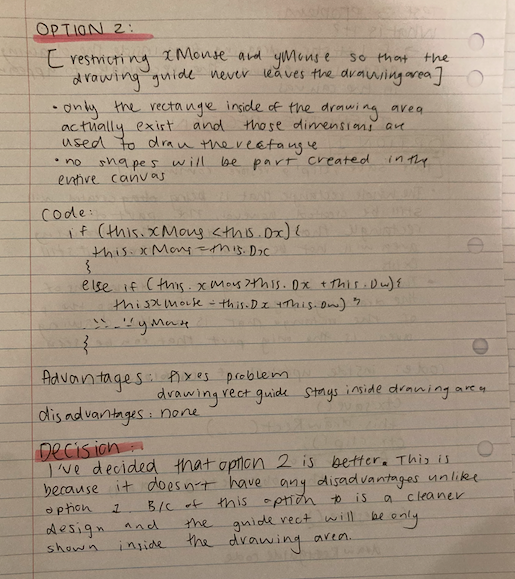 OPTION 2:
[restricting xMouse and yMouse so that the
drawing guide never leaves the drawing area]
• only the rectangle inside of the drawing area
actually exist and those dimensions are
used to draw the rectangle
• no shapes will be part created in the
entire canvas
code:
if (this.xMous < this.Dx){
this.xMous = this.Dx
}
else if (this.xMous > this.Dx + this.Dw){
this xMouse = this.Dx + this.Dw)
yMouse
}
Advantages: fixes problem
drawing rect guide stays inside drawing area
disadvantages: none
Decision:
I've decided that option 2 is better. This is
because it doesn't have any disadvantages unlike
option 1. B/C of this option is a cleaner
design and the guide rect will be only
shown inside the drawing area.